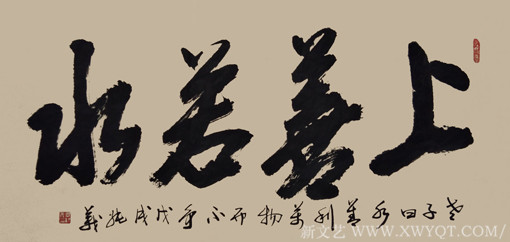 上善若水
老子曰水善利萬物而不争戊戌純義
新文艺 WWW.XWYQT.COM